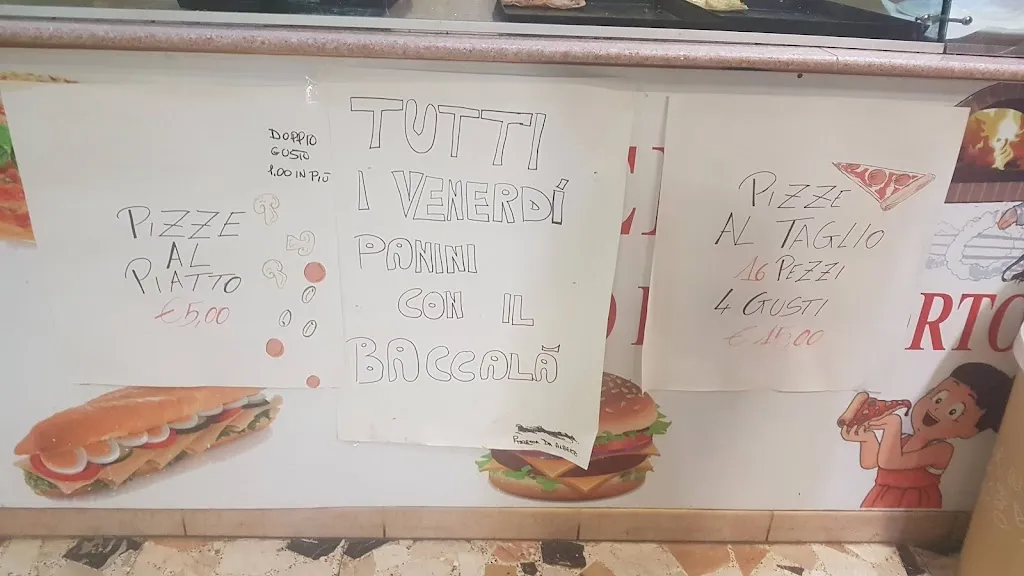 DOPPIO
GUSTO
1,00 IN PIÙ
PIZZE
AL
PIATTO
€5,00
TUTTI
I VENERDÍ
PANINI
CON IL
BACCALÀ
PIZZERIA DA
PIZZE
AL TAGLIO
16 PEZZI
4 GUSTI
€ 15,00
RTO